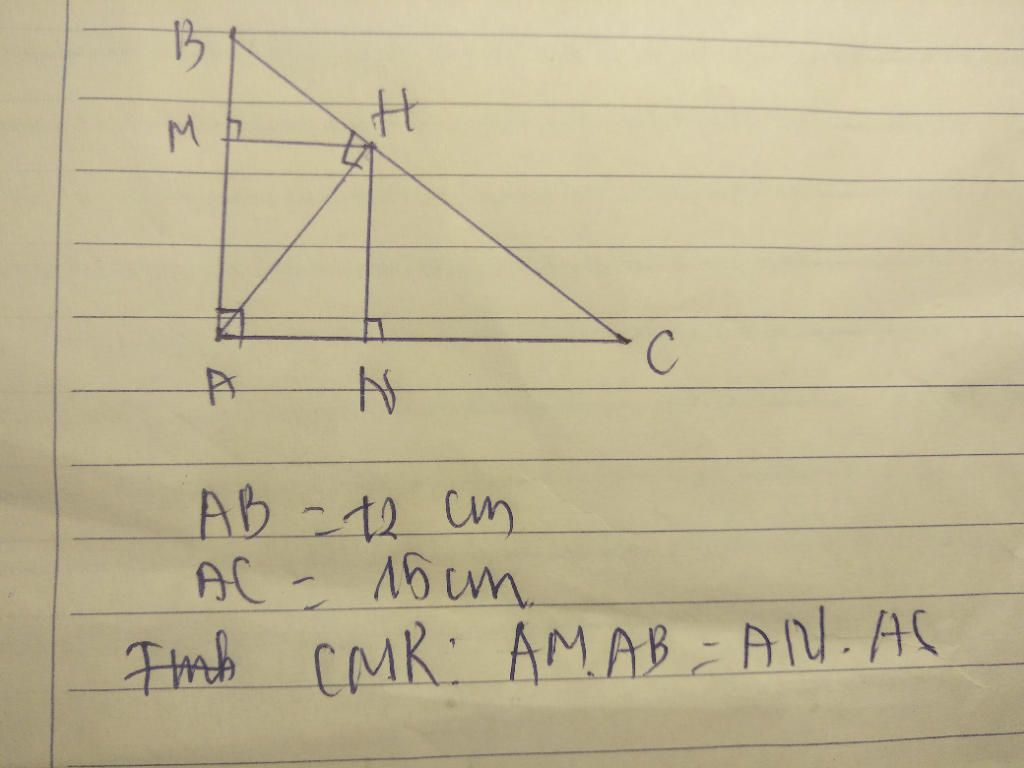 B
H
M
A
N
C
AB = 12 cm
AC = 15 cm
CMR: AM.AB = AN.AC